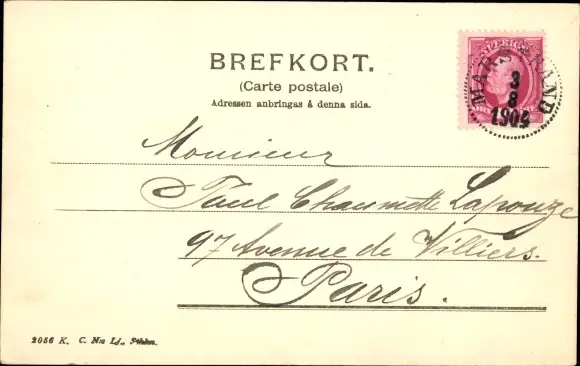 BREFKORT.
(Carte postale)
Adressen anbringas å denna sida.
SVERIGE
MARSTRAND
3
8
1904
Monsieur
Paul Chaumette Lapouze
97 Avenue de Villiers.
Paris.
2056 K. C. N:s Ld., Sthlm.